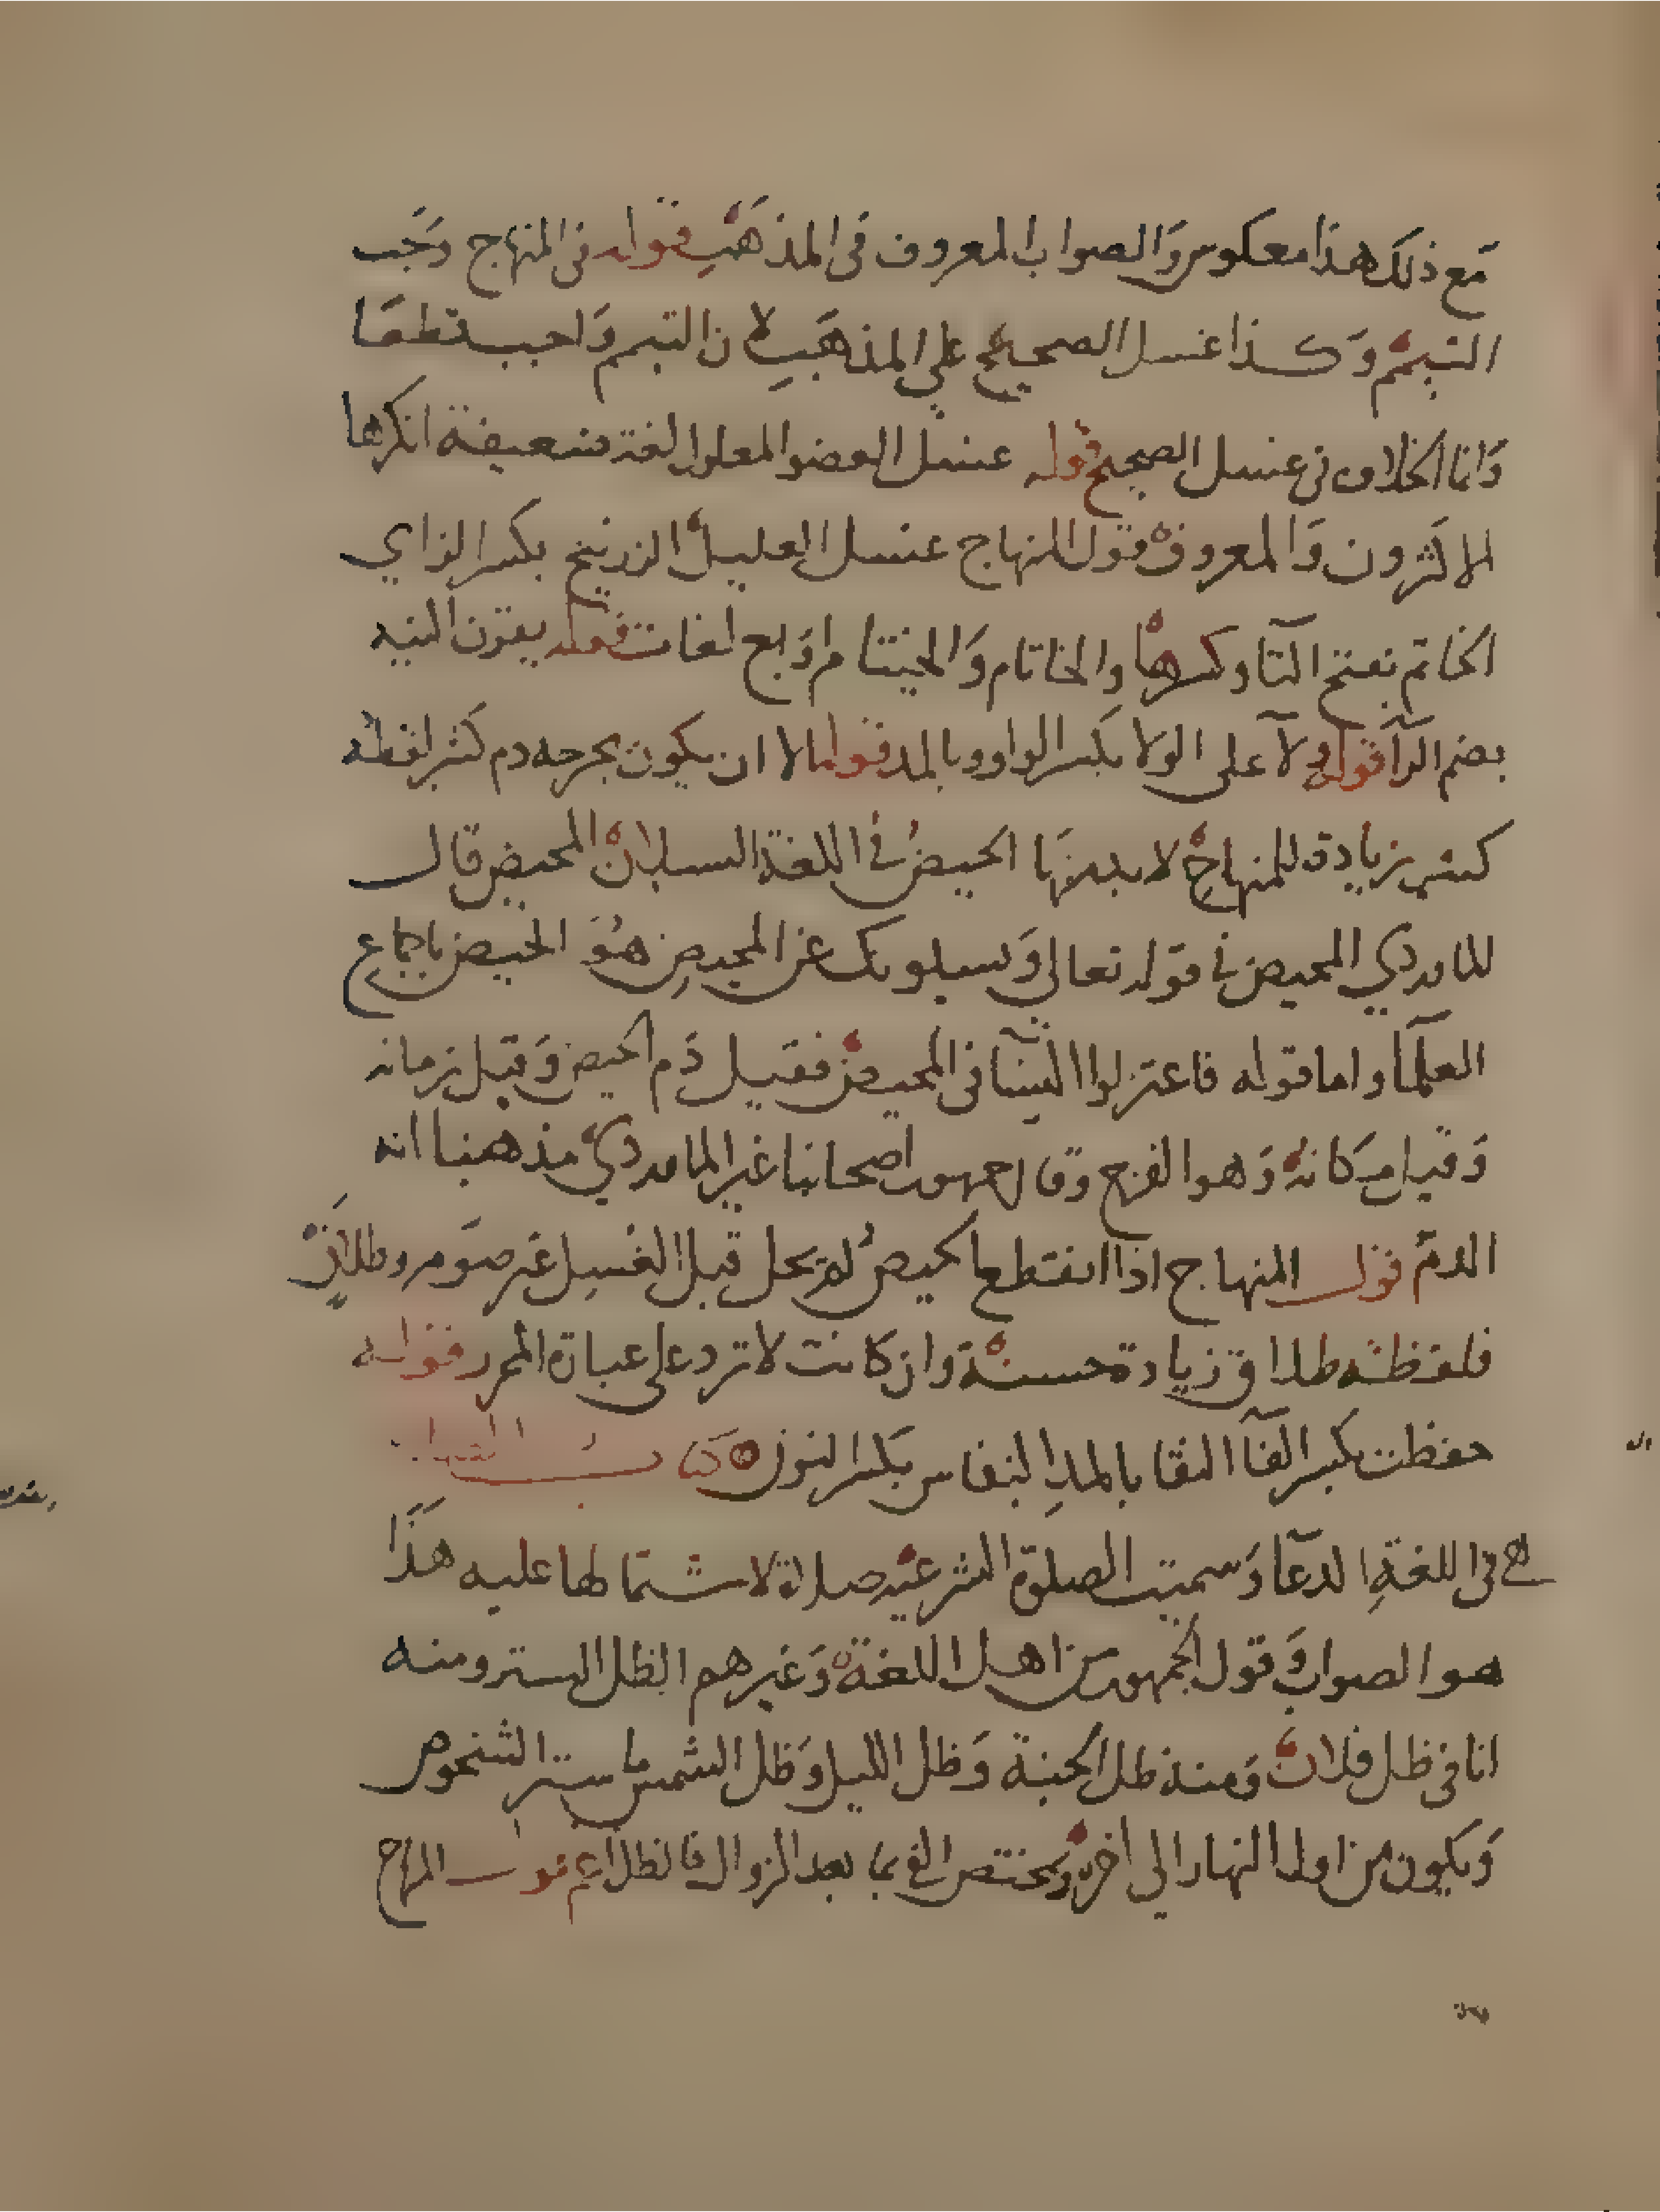 مَع ذلكَ هذا معكوس وَالصواب المعروف في المذهَب قوله في المنهاج وَجَب
التيمم وَكذا غسل الصحيح علي المذهَب لان التيمم وَاجب قطعًا
وَانما الخلاف في غسل الصحيح قوله غسل العضو المعلول لغة ضعيفة انكرها
الاكثرون وَالمعروف قول المنهاج غسل العليل الزرنيخ بكسر الزاي
الخاتم بفتح التآ وكسرها والخاتام وَالخيتام اربع لغات قوله يقرن النيه
بضم الرآ قوله ولآ على الولا بكسر الواو وبالمد قولهما الا ان يكون بجرحه دم كثير لفظه
كثير زيادة للمنهاج لا بد منها الحيضُ في اللغة السيلان المحيض قال
الماوردي المحيض في قوله تعالي وَيسيلونك عن المحيض هُوَ الحيض باجماع
العلمآ واما قوله فاعتزلوا النسآ في المحيض فقيل دَم الحيض وَقيل زمانه
وَقيل مَكانه وَهو الفرج وقال جمهور اصحابنا غير الماوردي مذهبنا انه
الدم قول المنهاج اذا انقطع الحيضُ لم يحل قبل الغُسل غير صوَم وطلاق
فلفظه طلاق زيادة حسنة وان كانت لا ترد على عبارة المحرر قوله
حفظت بكسر الفآ النقا بالمد النفاس بكَسر النون كتاب الصلاة
هي في اللغةِ الدعآ وَسميت الصلوة الشرعيه صلاة لاشتمالها عليه هذَا
هو الصواب وَقول الجمهور من اهل اللغة وَغيرهم الظل الستر ومنه
انا في ظل فلان وَمنه ظل الجنة وَظل الليل وَظل الشمس ما ستر الشخوص
وَيكون من اول النهار الى اخره وَيختص الفي بما بعد الزوال فالظل اعم قول المنهاج